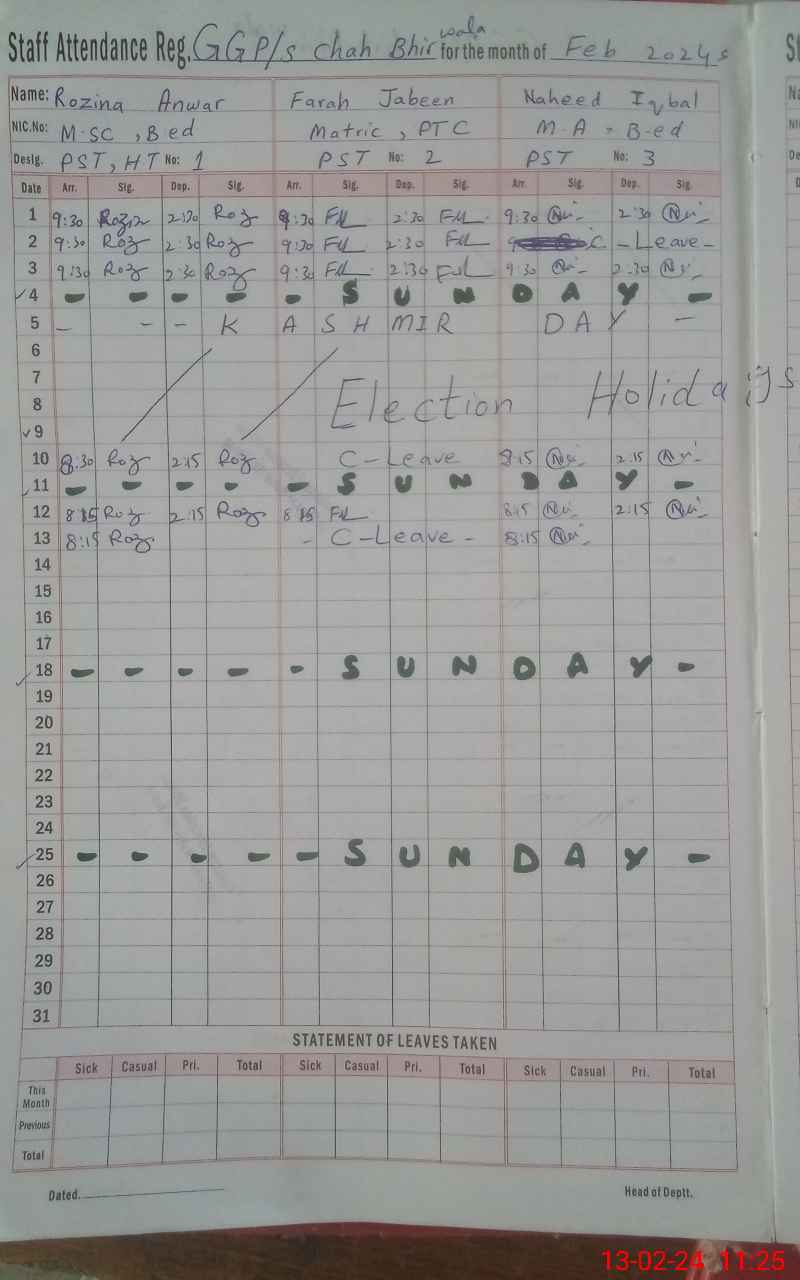 Staff Attendance Reg. GGP/s Chah Bhir wala for the month of Feb 2024
Name: Rozina Anwar Farah Jabeen Naheed Iqbal
NIC.No: M.SC, Bed Matric, PTC M.A - B-ed
Desig. PST, HT No: 1 PST No: 2 PST No: 3
Date Arr. Sig. Dep. Sig. Arr. Sig. Dep. Sig. Arr. Sig. Dep. Sig.
1 9:30 Rozina 2:30 Roz 9:30 2:30 9:30 2:30
2 9:30 Roz 2:30 Roz 9:30 2:30 C - Leave -
3 9:30 Roz 2:30 Roz 9:30 2:30 9:30 2:30
4 - - - - - S U N D A Y -
5 - - - K A S H M I R D A Y -
6
7
8 Election Holidays
9
10 8:30 Roz 2:15 Roz C-Leave 8:15 2:15
11 - - - - - S U N D A Y -
12 8:15 Roz 2:15 Roz 8:15 8:15 2:15
13 8:15 Roz - C-Leave - 8:15
14
15
16
17
18 - - - - - S U N D A Y -
19
20
21
22
23
24
25 - - - - - S U N D A Y -
26
27
28
29
30
31
STATEMENT OF LEAVES TAKEN
Sick Casual Pri. Total Sick Casual Pri. Total Sick Casual Pri. Total
This Month
Previous
Total
Dated. Head of Deptt.
13-02-24 11:25